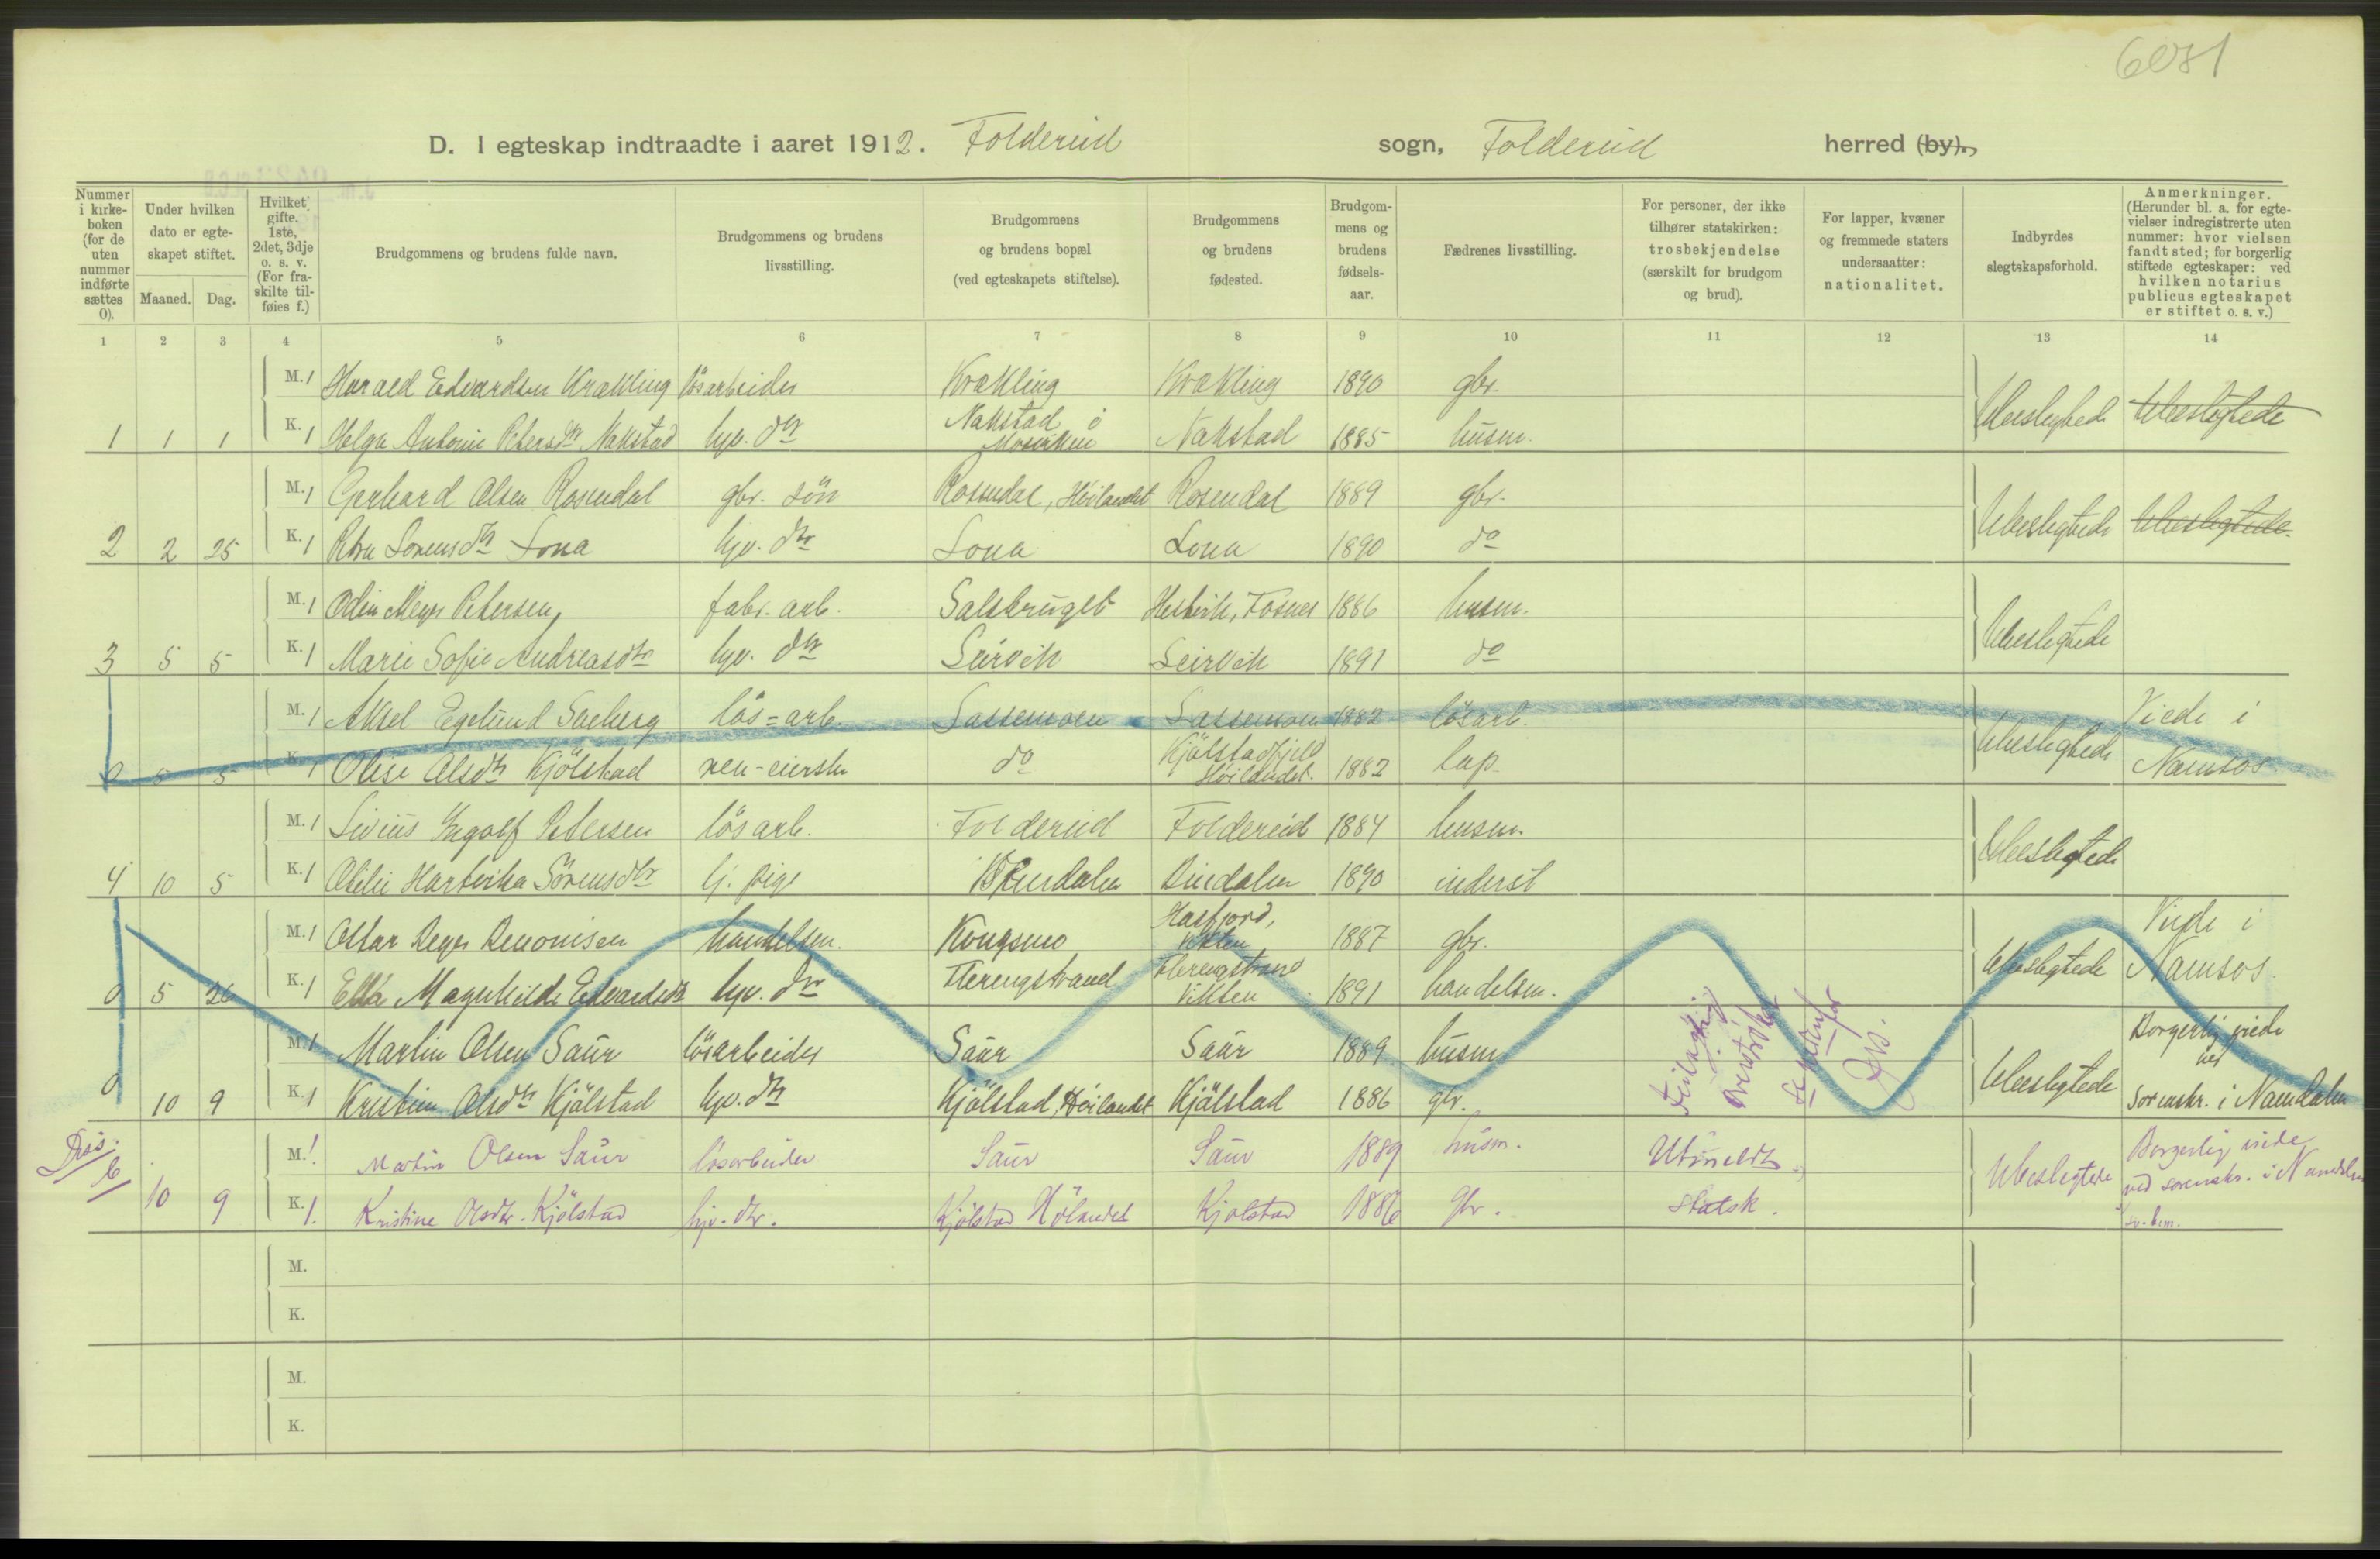 6081
D. I egteskap indtraadte i aaret 1912. Foldereid sogn, Foldereid herred (by).
Nummer i kirke-boken (for de uten nummer indførte sættes 0).
Under hvilken dato er egte-skapet stiftet.
Maaned. Dag.
Hvilket gifte. 1ste, 2det, 3dje o. s. v. (For fra-skilte til-føies f.)
Brudgommens og brudens fulde navn.
Brudgommens og brudens livsstilling.
Brudgommens og brudens bopæl (ved egteskapets stiftelse).
Brudgommens og brudens fødested.
Brudgom-mens og brudens fødsels-aar.
Fædrenes livsstilling.
For personer, der ikke tilhører statskirken: trosbekjendelse (særskilt for brudgom og brud).
For lapper, kvæner og fremmede staters undersaatter: nationalitet.
Indbyrdes slegtskapsforhold.
Anmerkninger. (Herunder bl. a. for egte-vielser indregistrerte uten nummer: hvor vielsen fandt sted; for borgerlig stiftede egteskaper: ved hvilken notarius publicus egteskapet er stiftet o. s. v.)
1 2 3 4 5 6 7 8 9 10 11 12 13 14
M. 1 Harald Edvardsen Krækling løsarbeider Krækling Krækling 1890 gbr.
1 1 1 K. 1 Helga Antonie Petersdtr Nakstad hjv. dtr Nakstad i Mosviken Nakstad 1885 husm. Ubeslegtede Ubeslegtede
M. 1 Gerhard Olsen Rosendal gbr. søn Rosendal, Høilandet Rosendal 1889 gbr.
2 2 25 K. 1 Lorensdtr Lona hjv. dtr Lona Lona 1890 do Ubeslegtede Ubeslegtede.
M. 1 Odin Meyer Petersen, fabr. arb. Salsbruget Fosnes 1886 husm.
3 5 5 K. 1 Marie Sofie Andreasdtr hjv. dtr Leirvik Leirvik 1891 do Ubeslegtede
M. 1 Aksel Egelund Søeberg løs=arb. Lassemoen Lassemoen 1882 løsarb. Viede i
0 5 5 K. 1 Olise Olsdtr Kjølstad ren-eierske do Kjølstadfjeld Høilandet. 1882 lap Ubeslegtede Namsos
M. 1 Sivius Ingolf Petersen løsarb. Foldereid Foldereid 1884 husm.
4 10 5 K. 1 Otilie Hartvika Sørensdtr tj. pige Bindalen Bindalen 1890 inderst Ubeslegtede
M. 1 Oskar Reger Benonisen handelsm. Kongsmo Hasfjord, Vikten 1887 gbr. Viede i
0 5 26 K. 1 Ella Magnhilde Edvardsdtr hjv. dtr Flerengstrand Flerengstrand Vikten 1891 handelsm. Ubeslegtede Namsos
M. 1 Martin Olsen Saur løsarbeider Saur Saur 1889 husm. Borgerlig viede ved
0 10 9 K. 1 Kristine Olsdtr Kjølstad hjv. dtr Kjølstad, Høilandet Kjølstad 1886 gbr. Ubeslegtede sorenskr. i Namdalen
Feilagtig overstrøket
Dis. 6
M. 1. Martin Olsen Saur løsarbeider Saur Saur 1889 husm. Utmeldt Borgerlig viede
10 9 K. 1. Kristine Olsdtr. Kjølstad hjv. dtr. Kjølstad Hølandet Kjølstad 1886 Gbr. statsk. Ubeslegtede ved sorenskr. i Namdalen
M.
K.
M.
K.